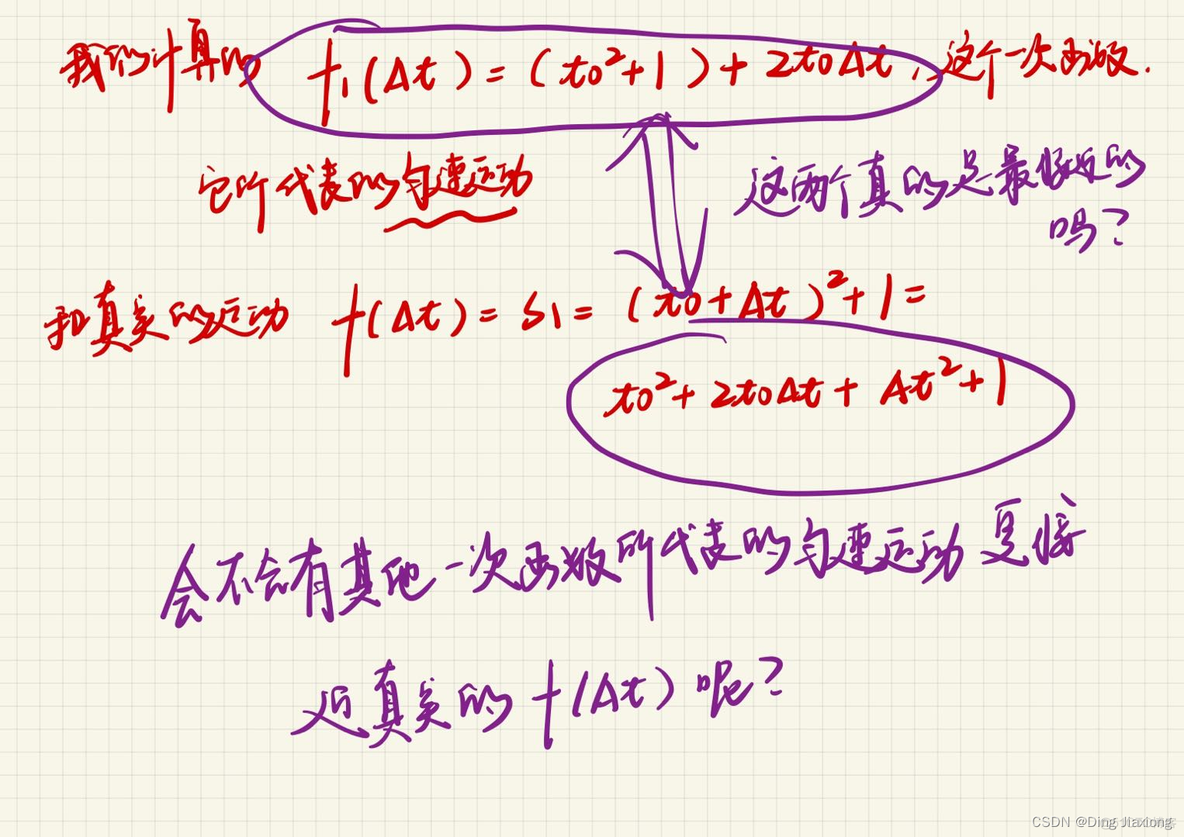 我们计算的 f₁(Δt) = (t0²+1) + 2t0Δt, 这个一次函数.
它所代表的匀速运动
这两个真的是最接近的
吗?
和真实的运动 f(Δt) = S1 = (t0+Δt)²+1 =
t0²+2t0Δt+Δt²+1
会不会有其他一次函数所代表的匀速运动更接
近真实的 f(Δt) 呢?
CSDN @Ding Jiaxiong